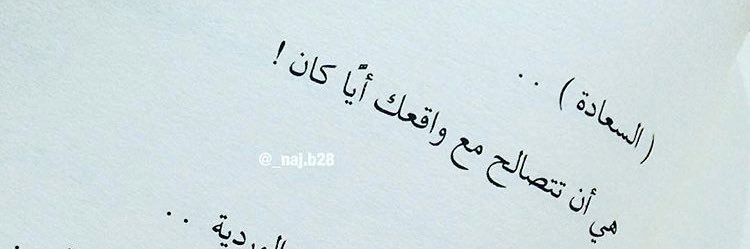 (السعادة) ..
هي أن تتصالح مع واقعك أيًّا كان !
@_naj.b28
..